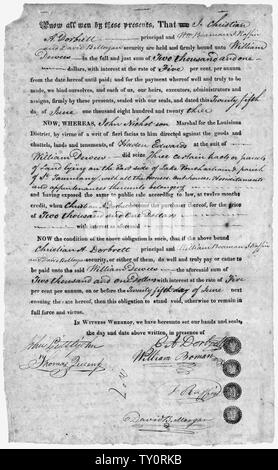 Know all men by these presents, That we Christian
A. Dorbell principal and Wm Boman
and David B. Morgan security are held and firmly bound unto William
Dewees in the full and just sum of Two thousand and one
dollars, with interest at the rate of Five per cent. per annum
from the date hereof until paid; and for the payment whereof well and truly to be
made, we bind ourselves, and each of us, our heirs, executors, administrators and
assigns, firmly by these presents, sealed with our seals, and dated this Twenty fifth
day of June one thousand eight hundred and twenty three.
NOW, WHEREAS, John Nicholson Marshal for the Louisiana
District, by virtue of a writ of fieri facias to him directed against the goods and
chattels, lands and tenements, of Haden Edwards at the suit of
William Dewees did seize Three certain tracts or parcels
of Land lying on the East side of Lake Ponchartrain & parish
of St. Tammany, with all the houses, out houses, hereditaments
and appurtenances thereunto belonging
and having exposed the same to public sale according to law, at twelve months
credit, when Christian A. Dorbell became the purchaser thereof, for the price
of Two thousand and One Dollars
with interest as aforesaid
NOW the condition of the above obligation is such, that if the above bound
Christian A. Dorbell principal and William Boman
and David B. Morgan security, or either of them, do well and truly pay or cause to
be paid unto the said William Dewees the aforesaid sum of
Two thousand and one Dollars with interest at the rate of Five
per cent per annum, on or before the Twenty fifth day of June next
ensuing the date hereof, then this obligation to stand void, otherwise to remain in
full force and virtue.
In Witness Whereof, we have hereunto set our hands and seals,
the day and date above written, in presence of
C. A. Dorbell
Thomas
William Boman
David B. Morgan
alamy
Image ID: TY0RKB
www.alamy.com